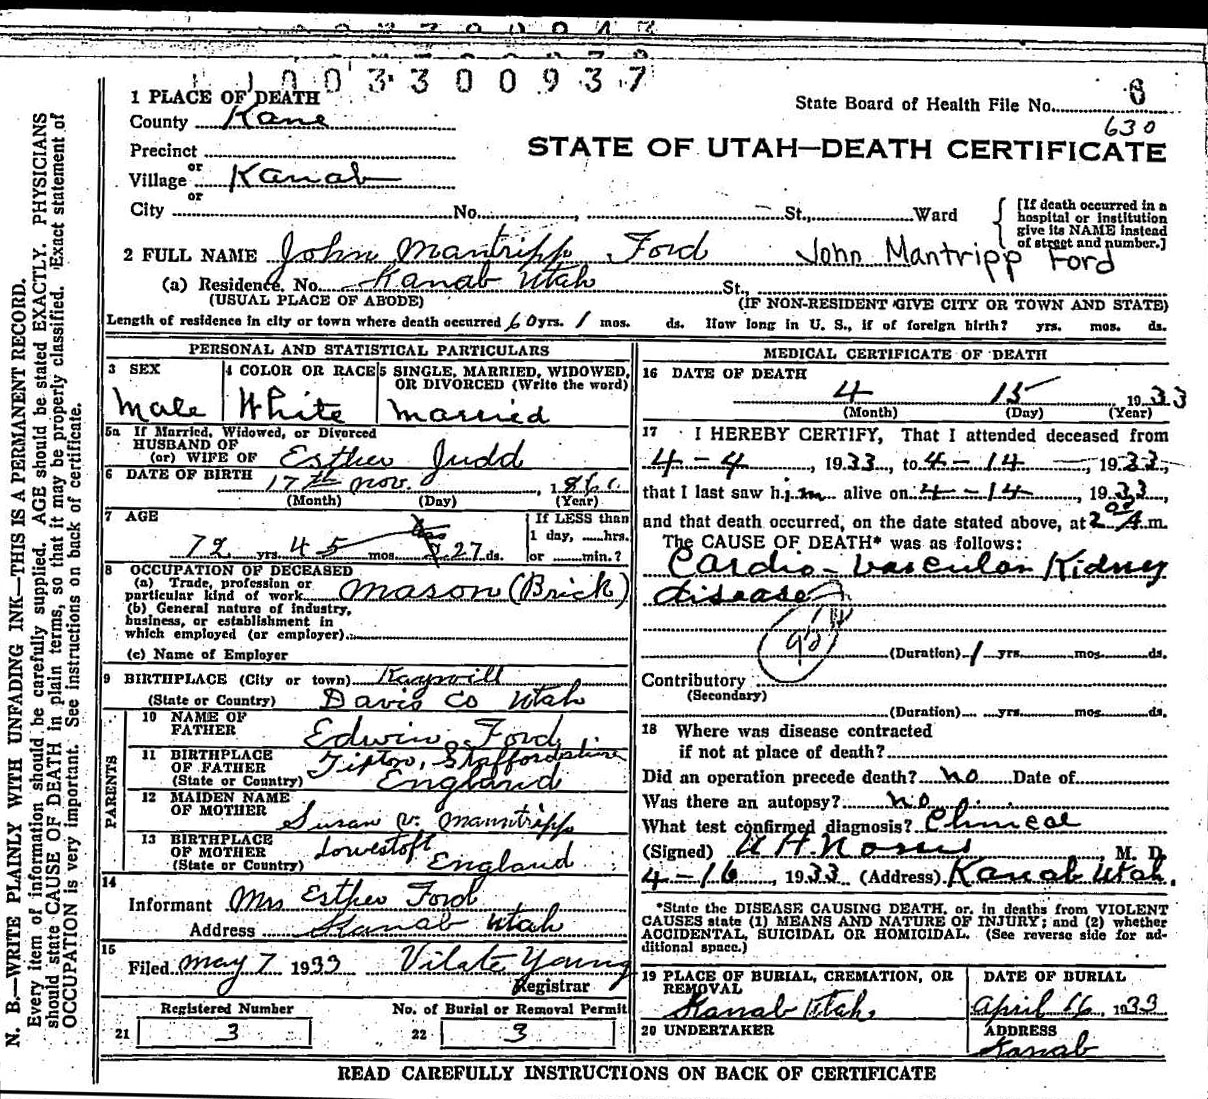 1003300937
1 PLACE OF DEATH
State Board of Health File No. 6
County Kane
630
STATE OF UTAH—DEATH CERTIFICATE
Precinct
or
Village Kanab
or
City No. St., Ward
[If death occurred in a
hospital or institution
give its NAME instead
of street and number.]
2 FULL NAME John Mantripp Ford John Mantripp Ford
(a) Residence. No. Kanab Utah St.,
(USUAL PLACE OF ABODE) (IF NON-RESIDENT GIVE CITY OR TOWN AND STATE)
Length of residence in city or town where death occurred 60 yrs. 1 mos. ds. How long in U. S., if of foreign birth? yrs. mos. ds.
PERSONAL AND STATISTICAL PARTICULARS
3 SEX
Male
4 COLOR OR RACE
White
5 SINGLE, MARRIED, WIDOWED,
OR DIVORCED (Write the word)
Married
5a If Married, Widowed, or Divorced
HUSBAND OF
(or) WIFE OF Esther Judd
6 DATE OF BIRTH 17th Nov. 186
(Month) (Day) (Year)
7 AGE
72 yrs. 4 mos. 27 ds.
If LESS than
1 day, hrs.
or min.?
8 OCCUPATION OF DECEASED
(a) Trade, profession or
particular kind of work Mason (Brick)
(b) General nature of industry,
business, or establishment in
which employed (or employer)
(c) Name of Employer
9 BIRTHPLACE (City or town) Kaysvill
(State or Country) Davis Co Utah
PARENTS
10 NAME OF
FATHER Edwin Ford
11 BIRTHPLACE
OF FATHER Tipton, Staffordshire
(State or Country) England
12 MAIDEN NAME
OF MOTHER Susan v. Manntripp
13 BIRTHPLACE
OF MOTHER Lowestoft
(State or Country) England
14
Informant Mrs Esther Ford
Address Kanab Utah
15
Filed May 7 1933 Vilate Young
Registrar
Registered Number No. of Burial or Removal Permit
21 3 22 3
MEDICAL CERTIFICATE OF DEATH
16 DATE OF DEATH
4 15 1933
(Month) (Day) (Year)
17 I HEREBY CERTIFY, That I attended deceased from
4-4, 1933, to 4-14, 1933,
that I last saw him alive on 4-14, 1933,
and that death occurred, on the date stated above, at 2 00 A.m.
The CAUSE OF DEATH* was as follows:
Cardio-vascular Kidney
disease
(Duration) 1 yrs. mos. ds.
Contributory
(Secondary)
(Duration) yrs. mos. ds.
18 Where was disease contracted
if not at place of death?
Did an operation precede death? no Date of
Was there an autopsy? no
What test confirmed diagnosis? Clinical
(Signed) M. D.
4-16, 1933 (Address) Kanab Utah.
*State the DISEASE CAUSING DEATH, or, in deaths from VIOLENT
CAUSES state (1) MEANS AND NATURE OF INJURY; and (2) whether
ACCIDENTAL, SUICIDAL OR HOMICIDAL. (See reverse side for ad-
ditional space.)
19 PLACE OF BURIAL, CREMATION, OR
REMOVAL
Kanab Utah.
DATE OF BURIAL
April 16, 1933
20 UNDERTAKER
ADDRESS
Kanab
READ CAREFULLY INSTRUCTIONS ON BACK OF CERTIFICATE
N. B.—WRITE PLAINLY WITH UNFADING INK—THIS IS A PERMANENT RECORD.
Every item of information should be carefully supplied. AGE should be stated EXACTLY. PHYSICIANS
should state CAUSE OF DEATH in plain terms, so that it may be properly classified. Exact statement of
OCCUPATION is very important. See instructions on back of certificate.